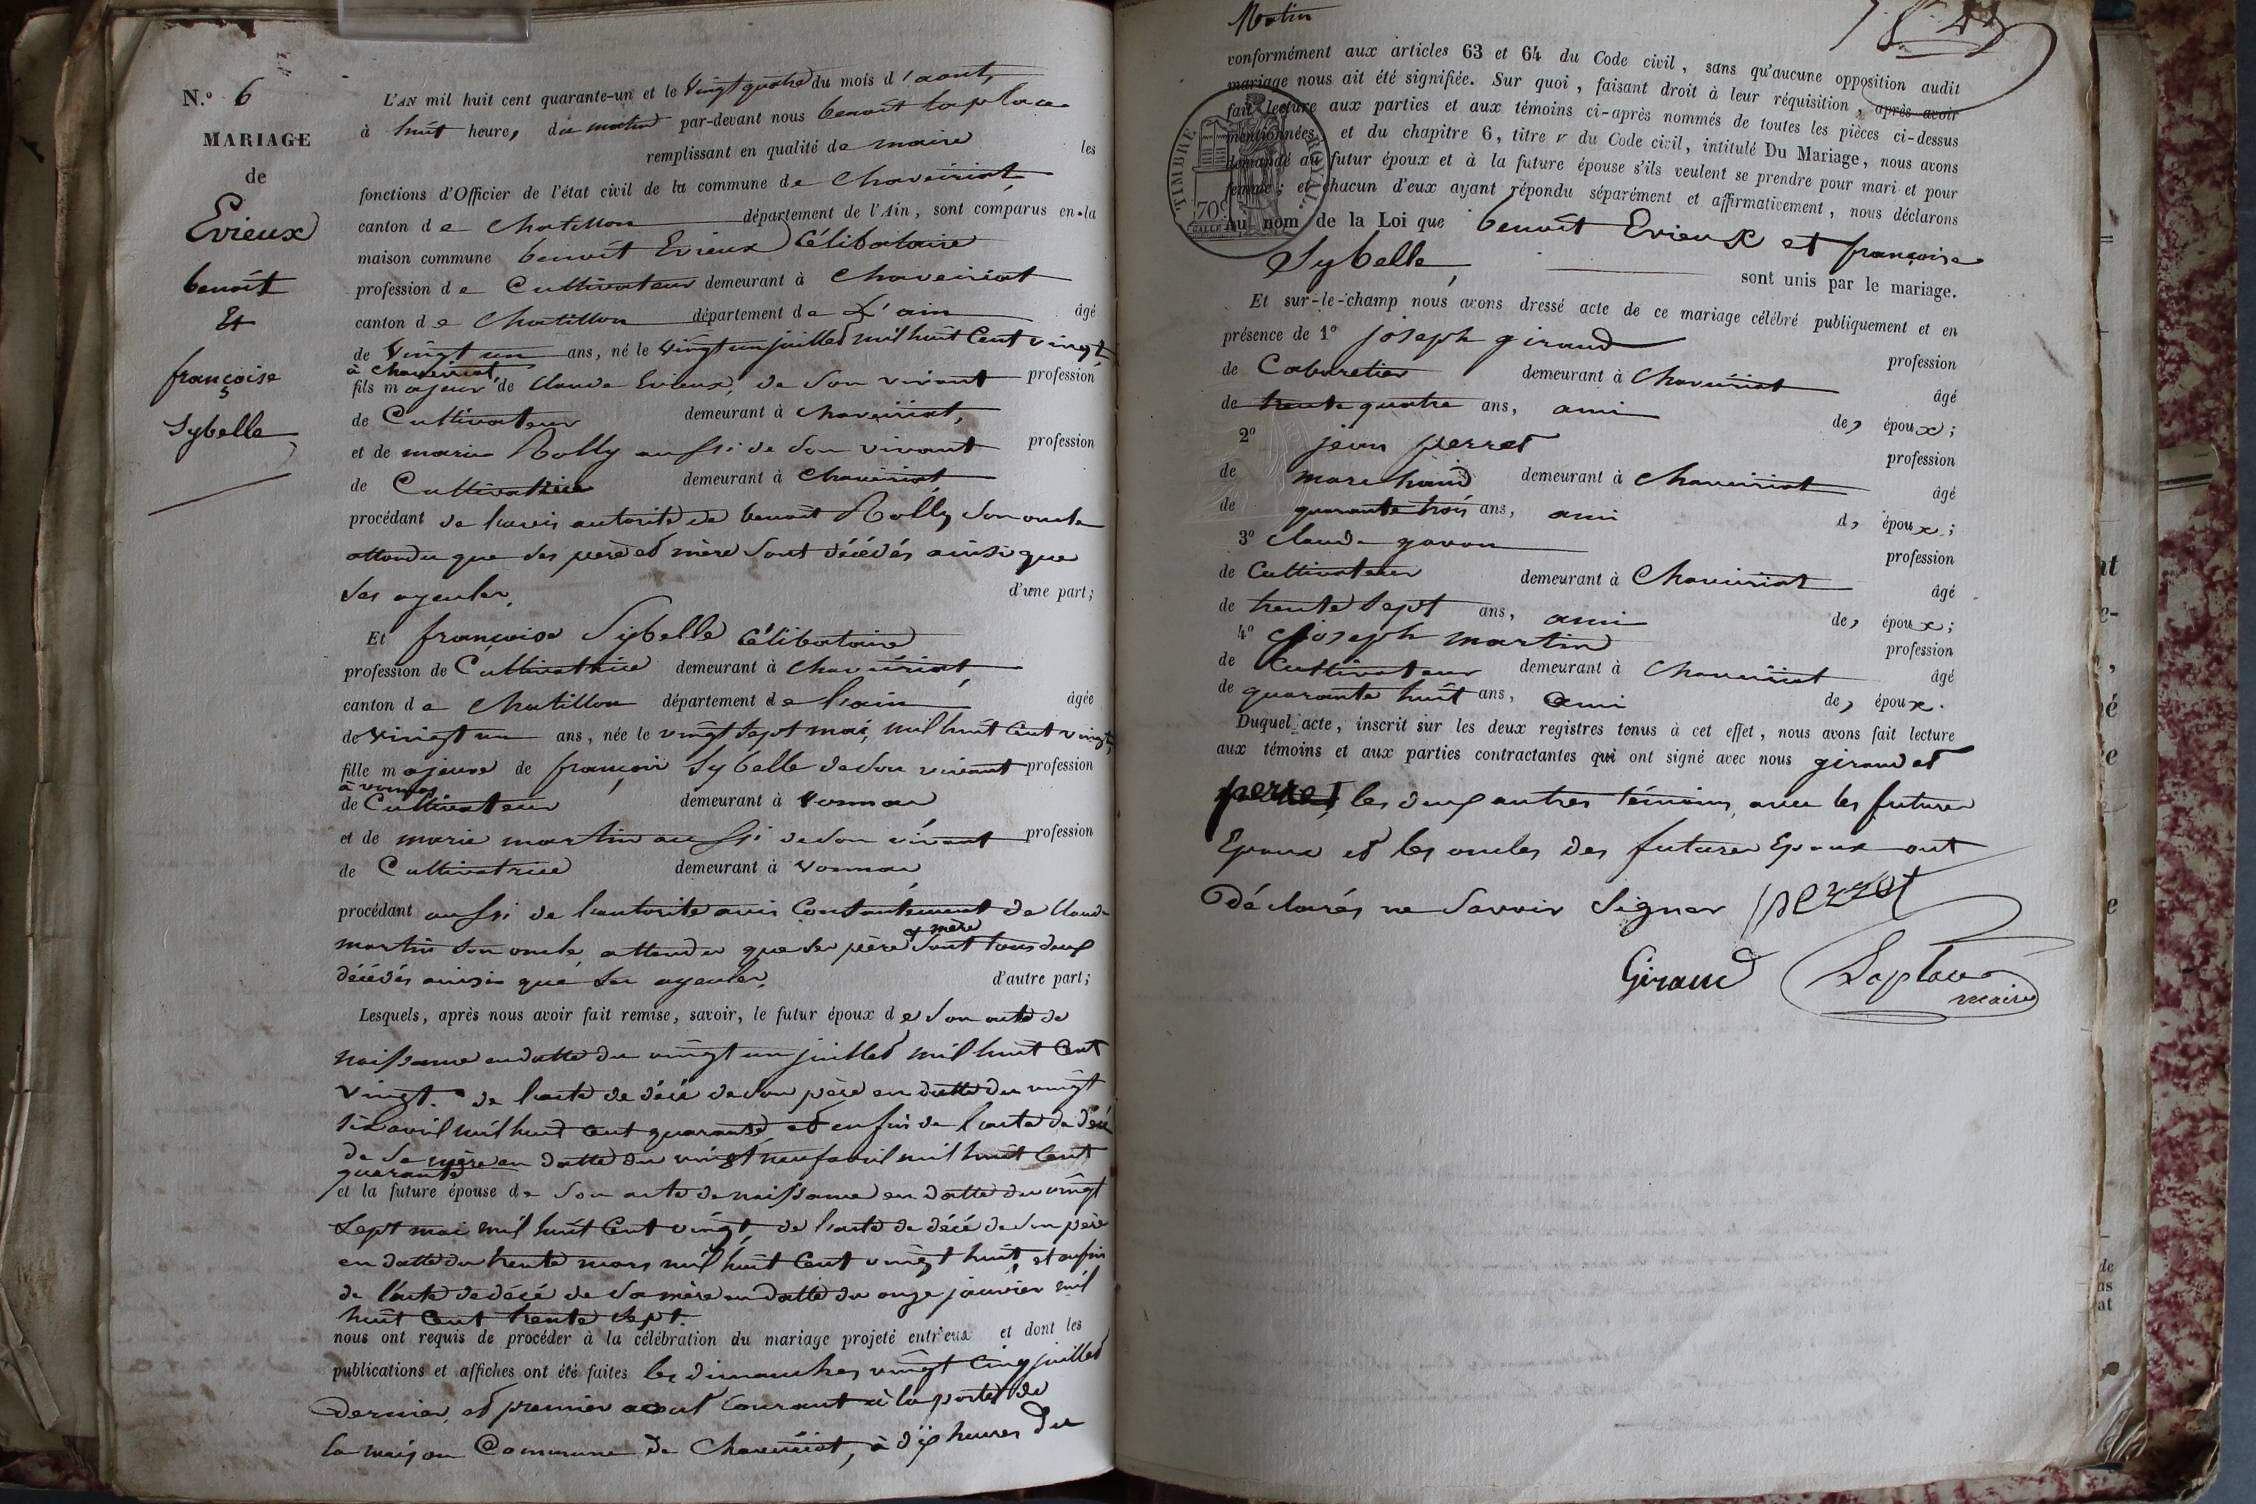 N.° 6
MARIAGE
de
Evieux
benoît
Et
françoise
Sybelle
L'AN mil huit cent quarante-un et le vingt quatre du mois d'aout,
à huit heures du matin par-devant nous benoît laplace
remplissant en qualité de maire les
fonctions d'Officier de l'état civil de la commune de Chaveiriat,
canton de Chatillon département de l'Ain, sont comparus en la
maison commune benoît Evieux Célibataire
profession de Cultivateur demeurant à Chaveiriat
canton de Chatillon département de L'ain âgé
de vingt un ans, né le vingt un juillet mil huit Cent vingt,
à Chaveiriat,
fils majeur de Claude Evieux, de son vivant profession
de Cultivateur demeurant à Chaveiriat,
et de marie Rolly aussi de son vivant profession
de Cultivatrice demeurant à Chaveiriat
procédant de l'avis autorité de benoît Rolly son oncle
attendu que ses père et mère sont décédés ainsi que
ses ayeuler, d'une part;
Et françoise Sybelle Célibataire
profession de Cultivatrice demeurant à Chaveiriat,
canton de Chatillon département de l'ain âgée
de vingt un ans, née le vingt sept mai, mil huit Cent vingt,
à vonnas
fille majeure de françois Sybelle de son vivant profession
de Cultivateur demeurant à Vonnas
et de marie martin aussi de son vivant profession
de Cultivatrice demeurant à Vonnas
procédant aussi de l'autorité avis Consentement de Claude
martin son oncle, attendu que ses père et mère sont tous deux
décédés ainsi que ses ayeuler, d'autre part;
Lesquels, après nous avoir fait remise, savoir, le futur époux de son acte de
naissance en datte du vingt un juillet mil huit Cent
vingt. de l'acte de décé de son père en datte du vingt
six avril mil huit Cent quarante et enfin de l'acte de décé
de sa mère en datte du vingt neuf avril mil huit Cent
quarante
et la future épouse de son acte de naissance en datte du vingt
Sept mai mil huit Cent vingt, de l'acte de décé de son père
en datte du trente mars mil huit Cent vingt huit, et enfin
de l'acte de décé de sa mère en datte du onze janvier mil
huit Cent trente sept.
nous ont requis de procéder à la célébration du mariage projeté entr'eux et dont les
publications et affiches ont été faites les dimanches vingt Cinq juillet
dernier, et premier aout Courant à la porte de
la maison Commune de Chaveiriat, à dix heures du
Matin
conformément aux articles 63 et 64 du Code civil, sans qu'aucune opposition audit
mariage nous ait été signifiée. Sur quoi, faisant droit à leur réquisition, après avoir
fait lecture aux parties et aux témoins ci-après nommés de toutes les pièces ci-dessus
mentionnées, et du chapitre 6, titre v du Code civil, intitulé Du Mariage, nous avons
demandé au futur époux et à la future épouse s'ils veulent se prendre pour mari et pour
femme; et chacun d'eux ayant répondu séparément et affirmativement, nous déclarons
Au nom de la Loi que benoît Evieux et françoise
Sybelle, sont unis par le mariage.
TIMBRE ROYAL.
70c
Et sur-le-champ nous avons dressé acte de ce mariage célébré publiquement et en
présence de 1° joseph giraud profession
de Cabaretier demeurant à Chaveiriat âgé
de trente quatre ans, ami des époux;
2° jean perret profession
de marchand demeurant à Chaveiriat âgé
de quarante trois ans, ami ds époux;
3° Claude gavon profession
de Cultivateur demeurant à Chaveiriat âgé
de trente Sept ans, ami des époux;
4° joseph martin profession
de Cultivateur demeurant à Chaveiriat âgé
de quarante huit ans, ami des époux.
Duquel acte, inscrit sur les deux registres tenus à cet effet, nous avons fait lecture
aux témoins et aux parties contractantes qui ont signé avec nous giraud et
perret, les deux autres témoins, avec les futures
Epoux et les oncles des futures Epoux ont
Déclarés ne Savoir Signer perret
Giraud Laplace
maire